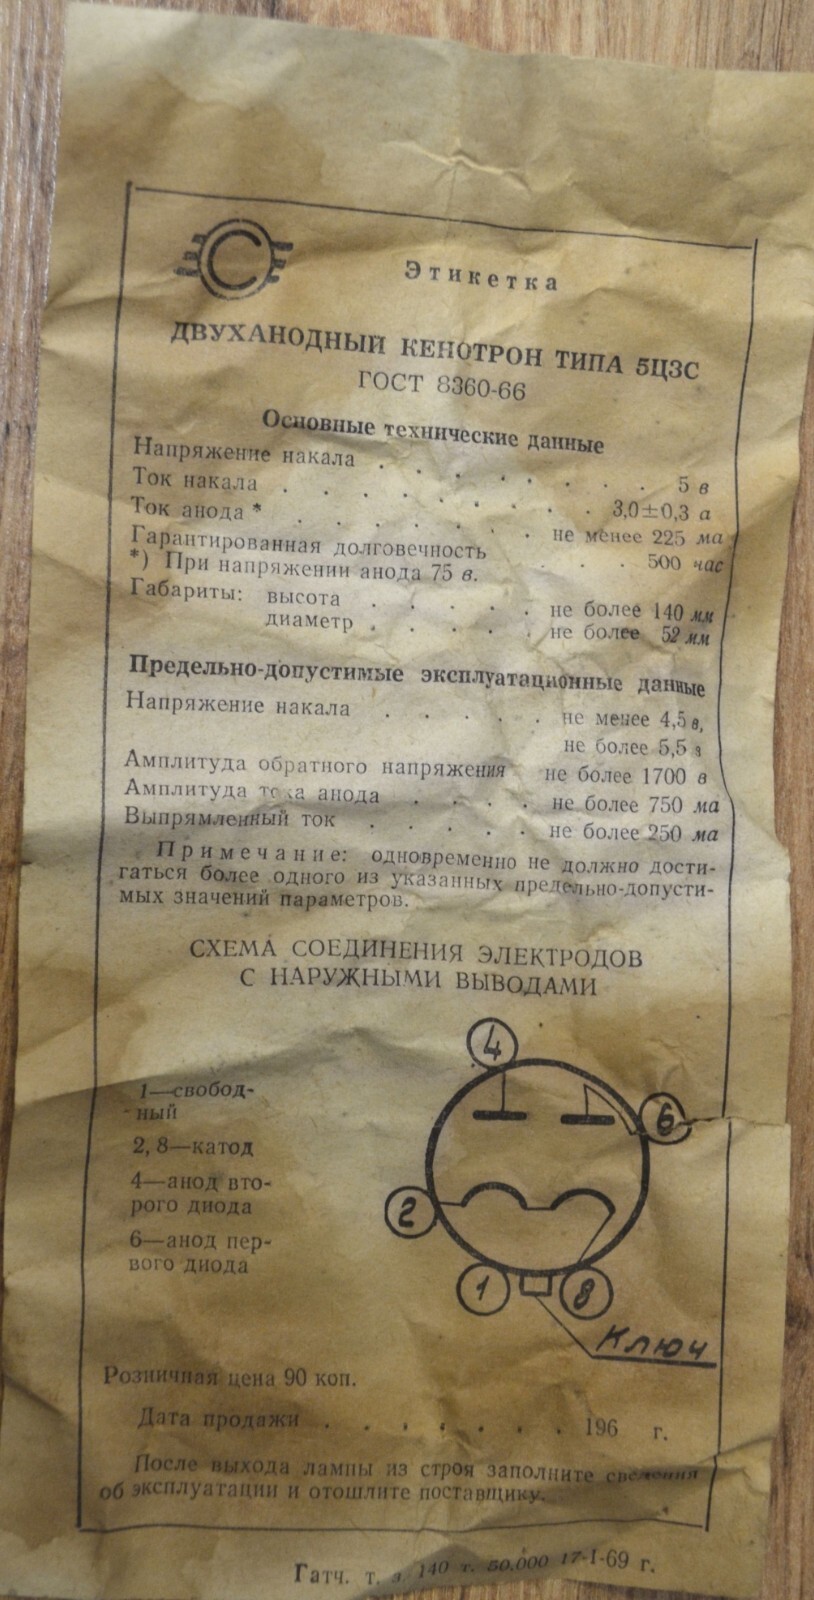 С
Этикетка
ДВУХАНОДНЫЙ КЕНОТРОН ТИПА 5Ц3С
ГОСТ 8360-66
Основные технические данные
Напряжение накала . . . . . . . . . 5 в
Ток накала . . . . . . . . . 3,0±0,3 а
Ток анода * . . . . . . не менее 225 ма
Гарантированная долговечность . . . 500 час
*) При напряжении анода 75 в.
Габариты: высота . . . . . не более 140 мм
диаметр . . . . . не более 52 мм
Предельно-допустимые эксплуатационные данные
Напряжение накала . . . . . не менее 4,5 в,
не более 5,5 в
Амплитуда обратного напряжения не более 1700 в
Амплитуда тока анода . . . . не более 750 ма
Выпрямленный ток . . . . . не более 250 ма
Примечание: одновременно не должно дости-
гаться более одного из указанных предельно-допусти-
мых значений параметров.
СХЕМА СОЕДИНЕНИЯ ЭЛЕКТРОДОВ
С НАРУЖНЫМИ ВЫВОДАМИ
1—свобод-
ный
2, 8—катод
4—анод вто-
рого диода
6—анод пер-
вого диода
4
6
2
1
8
Ключ
Розничная цена 90 коп.
Дата продажи . . . . . . . . 196 г.
После выхода лампы из строя заполните сведения
об эксплуатации и отошлите поставщику.
Гатч. т. з. 140 т. 50.000 17-I-69 г.